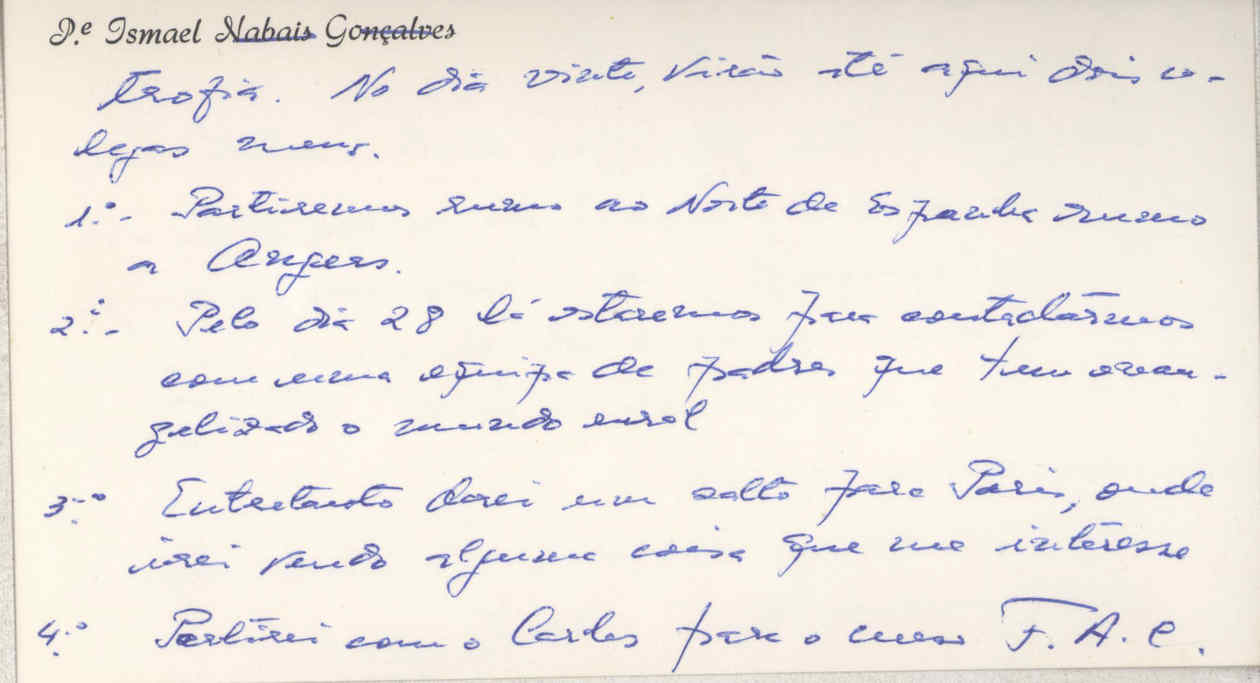 P.e Ismael Nabais Gonçalves
trofia. No dia vinte, virão até aqui dois co-
legas meus.
1.º- Partiremos rumo ao Norte de Espanha rumo
a Angers.
2.º- Pelo dia 28 lá estaremos para contactármos
com uma equipa de padres que tem evan-
gelizado o mundo rural
3.º Entretanto darei um salto para Paris, onde
irei vendo alguma coisa que me interesse
4.º Partirei com o Carlos para o curso F. A. C.